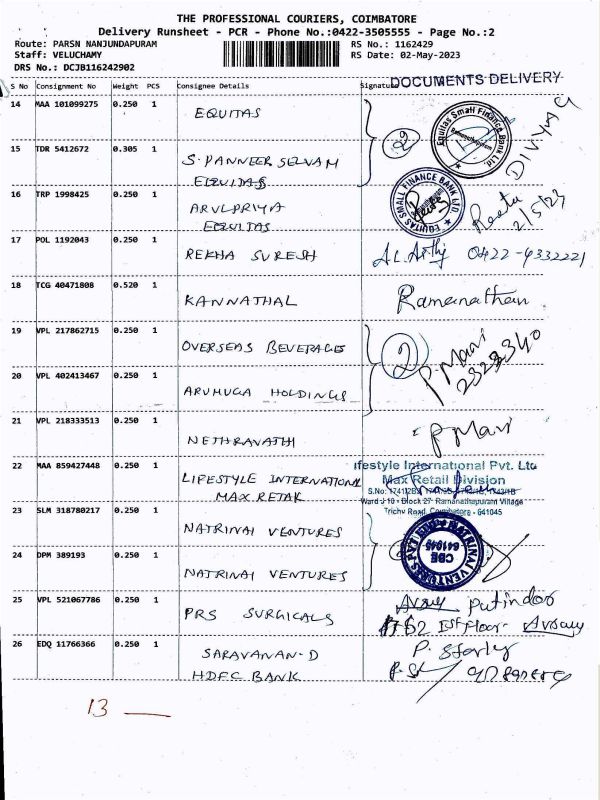 THE PROFESSIONAL COURIERS, COIMBATORE
Delivery Runsheet - PCR - Phone No.:0422-3505555 - Page No.:2
Route: PARSN NANJUNDAPURAM RS No.: 1162429
Staff: VELUCHAMY RS Date: 02-May-2023
DRS No.: DCJB116242902
DOCUMENTS DELIVERY
S No Consignment No Weight PCS Consignee Details Signature
14 MAA 101099275 0.250 1 EQUITAS
Equitas Small Finance Bank Ltd.
DIVYA
15 TDR 5412672 0.305 1 S. PANNEER SELVAM
EQUITAS
16 TRP 1998425 0.250 1 ARULPRIYA
EQUITAS
EQUITAS SMALL FINANCE BANK LTD.
Reeta
2/5/23
17 POL 1192043 0.250 1 REKHA SURESH 0422-4332221
18 TCG 40471808 0.520 1 KANNATHAL Ramanathan
19 VPL 217862715 0.250 1 OVERSEAS BEVERAGES
2
P. Mani
20 VPL 402413467 0.250 1 ARUMUGA HOLDINGS
21 VPL 218333513 0.250 1 NETHRAVATHI P Mani
22 MAA 859427448 0.250 1 LIFESTYLE INTERNATIONAL
MAX RETAK
ifestyle International Pvt. Ltd
Max Retail Division
Ward J-10 - Block 27- Ramanathapuram Village
Trichy Road, Coimbatore - 641045
23 SLM 318780217 0.250 1 NATRINAI VENTURES
NATRINAI VENTURES PVT LTD
CBE
641045
24 DPM 389193 0.250 1 NATRINAI VENTURES
25 VPL 521067786 0.250 1 PRS SURGICALS
Ist Floor-
26 EDQ 11766366 0.250 1 SARAVANAN-D
HDFC BANK
P. Starly
13